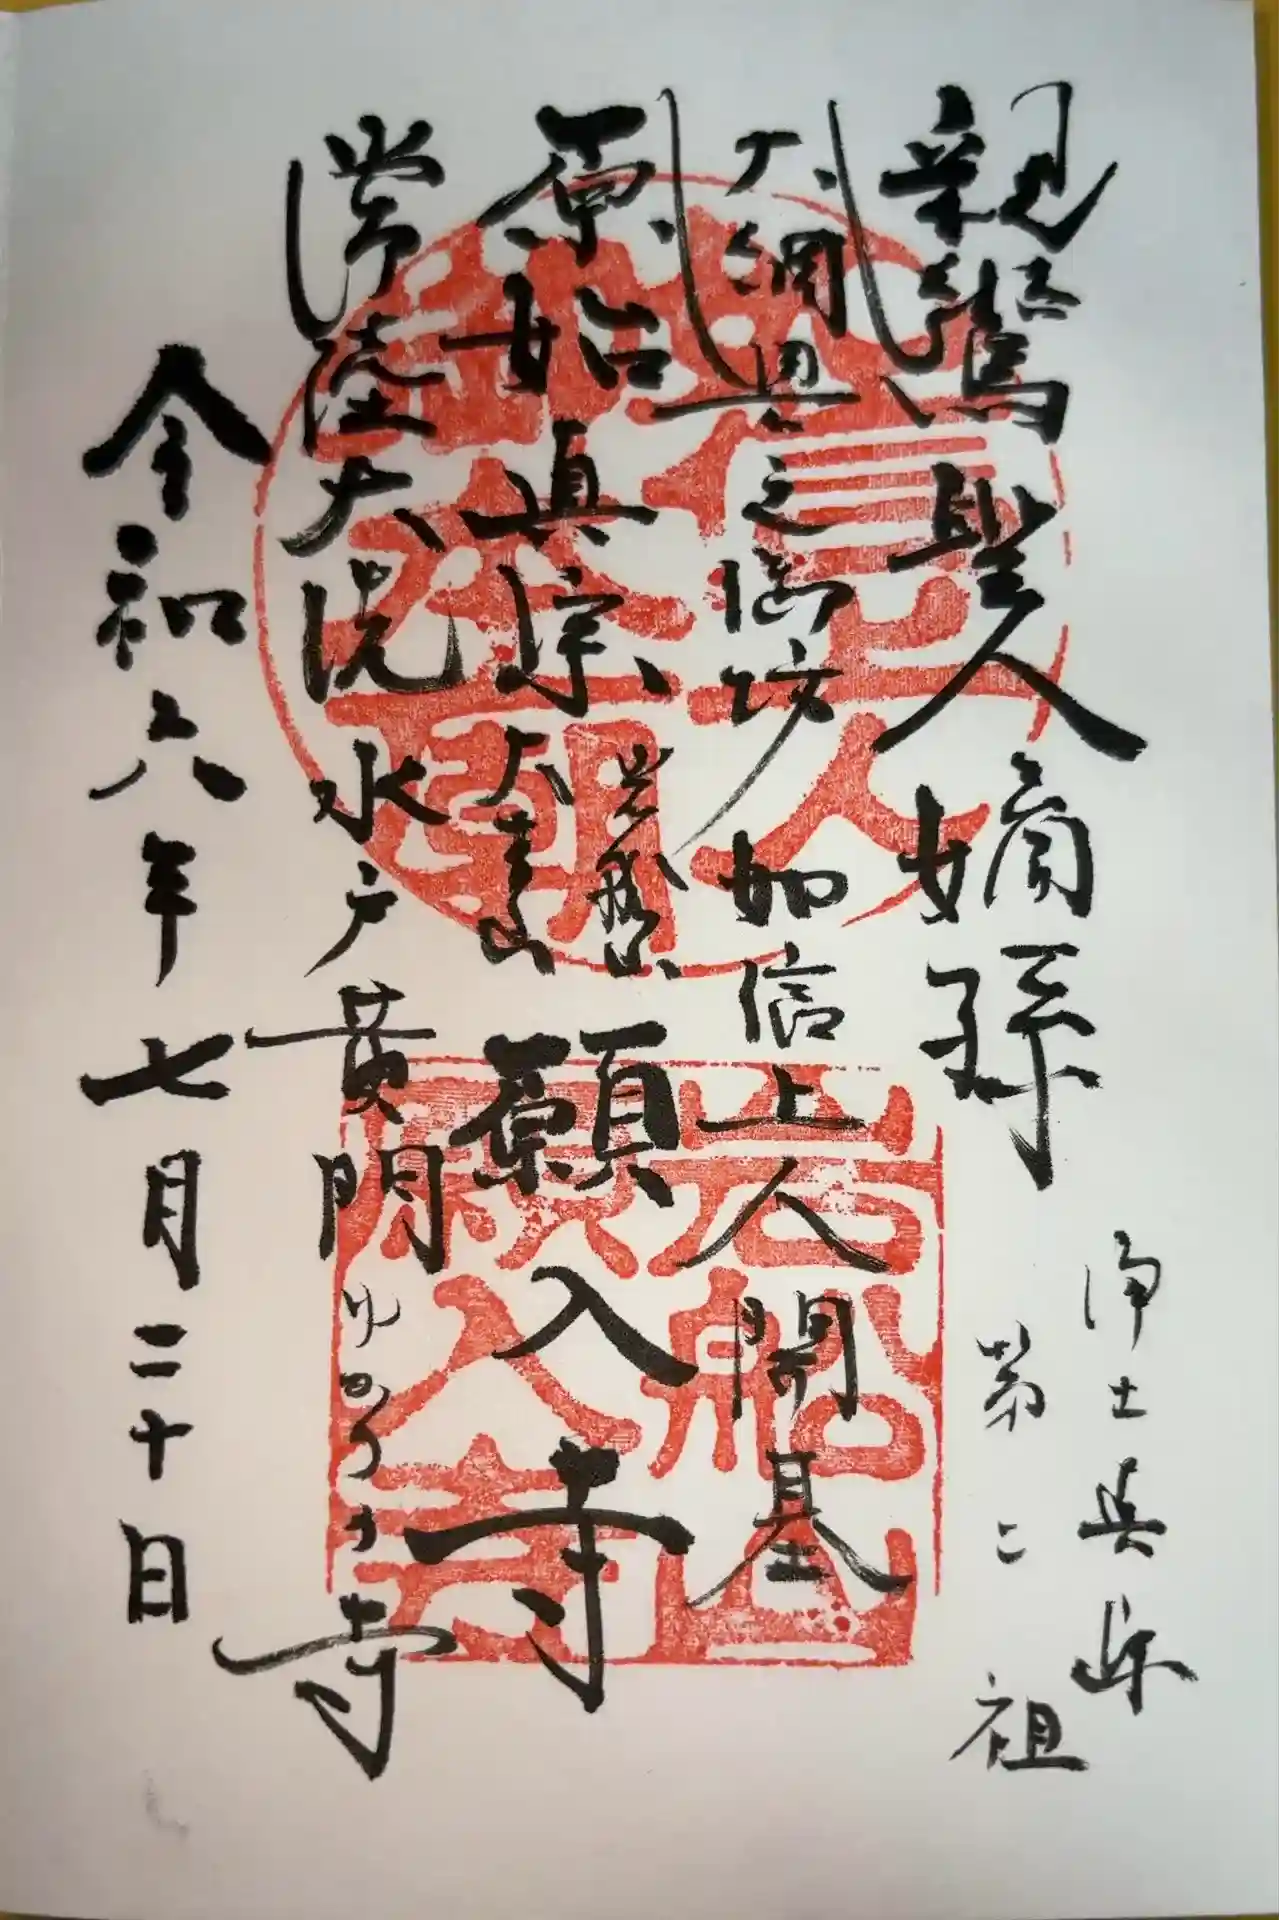 親鸞聖人嫡孫
浄土真宗
第二祖
大網奥之御坊 如信上人開基
原始真宗
岩船山
大本山
願入寺
常陸大洗 水戸黄門ゆかりの寺
令和六年七月二十日
岩船山
願入寺